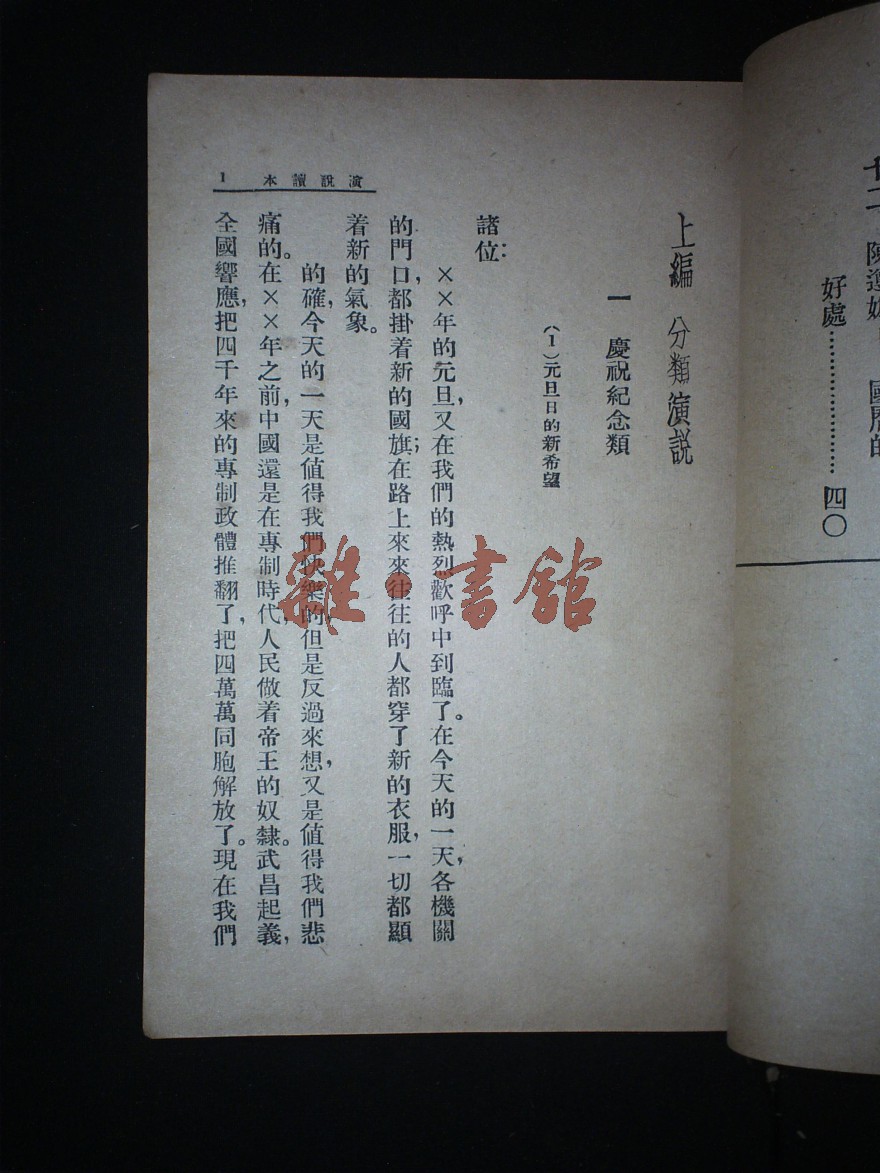 好處……………………四〇
演說讀本 1
上編 分類演說
一 慶祝紀念類
(1)元旦日的新希望
諸位:
××年的元旦,又在我們的熱烈歡呼中到臨了。在今天的一天,各機關
的門口,都掛着新的國旗;在路上來來往往的人都穿了新的衣服,一切都顯
着新的氣象。
的確,今天的一天是値得我們快樂的,但是反過來想,又是値得我們悲
痛的。在××年之前,中國還是在專制時代,人民做着帝王的奴隸。武昌起義,
全國響應,把四千年來的專制政體推翻了,把四萬萬同胞解放了。現在我們
雜·書館